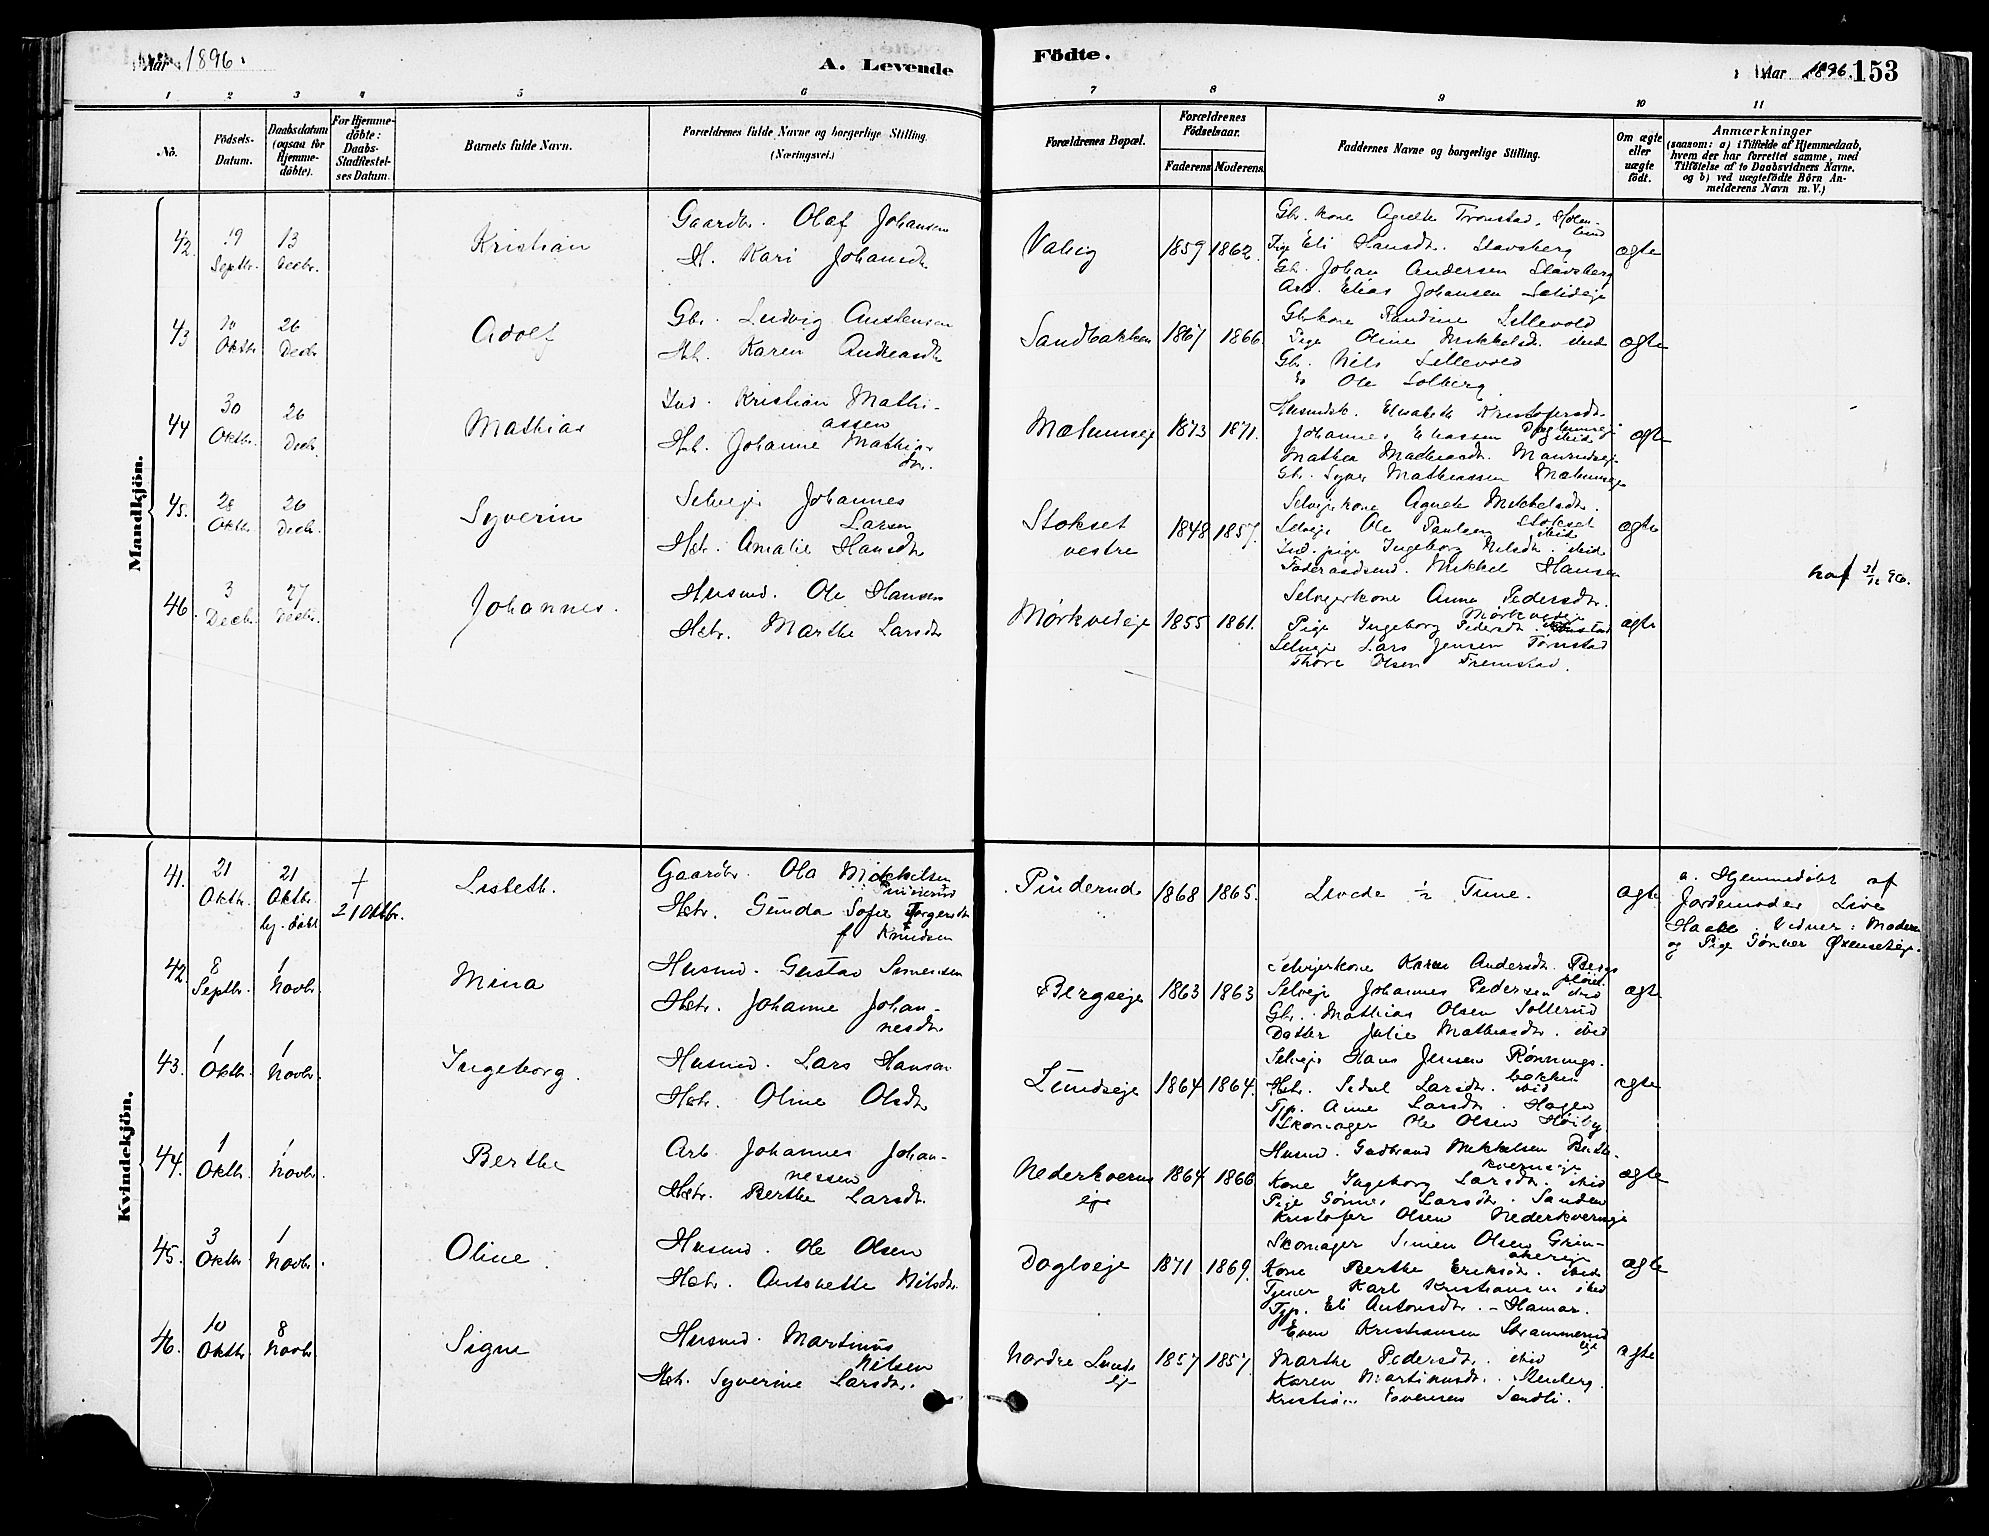 Aar 1896.
A. Levende
Födte.
Aar 1896.
153
1 2 3 4 5 6 7 8 9 10 11
No.
Födsels-
Datum.
Daabsdatum
(ogsaa for
Hjemme-
döbte).
For Hjemme-
döbte:
Daabs-
Stadfæstel-
ses Datum.
Barnets fulde Navn.
Forældrenes fulde Navne og borgerlige Stilling.
(Næringsvei.)
Forældrenes Bopæl.
Forældrenes
Födselsaar.
Faderens
Moderens
Faddernes Navne og borgerlige Stilling.
Om ægte
eller
uægte
födt.
Anmærkninger
(saasom: a) i Tilfælde af Hjemmedaab,
hvem der har forrettet samme, med
Tilföielse af to Daabsvidners Navne.
og b) ved uægtefödte Börn An-
melderens Navn m. V.)
Mandkjön.
42. 19 Septbr. 13 Decbr.
Kristian
Gaardbr. Olaf Johansen
H. Kari Johansdtr
Valvig
1859 1862.
Gbr. kone Agnethe Tronstad,
Pige Eli Hansdtr. Stavsberg
Gbr. Johan Andersen Stavsberg
Arb. Elias Johansen
ægte
43 10 Oktbr. 26 Decbr
Adolf
Gbr. Ludvig Austensen
Hst. Karen Andreasdtr
Sandbakken
1867 1866.
Gbrkone Pauline Lillevold
Pige Oline Mikkelsdtr. ibid
Gbr. Nils Lillevold
Ole Solberg
ægte
44 30 Oktbr. 26 Decbr.
Mathias
Ind. Kristian Mathi-
assen
Hst. Johanne Mathias-
dtr.
Mælumseje
1873 1871.
Husmdsk. Elisabeth Kristofersdtr.
Johannes Eliassen ibid
Mathea Mathiasdtr.
Gbr. Syver Mathiassen Mælumseje
ægte
45. 28 Oktbr. 26 Decbr.
Syverin
Selvejr Johannes
Larsen
Hstr. Amalie Hansdtr
Stokset
vestre
1848 1857.
Selvejerkone Agnethe Mikkelsdtr.
Stokset
Selvejr Ole Paulsen ibid
Ind. pige Ingeborg Nilsdtr. ibid.
Føderaadsmd. Mikkel Hansen
ægte
46. 3 Decbr. 27 Decbr.
Johannes.
Husmd. Ole Hansen
Hstr. Marthe Larsdtr
Mørkvedeje
1855 1861.
Selvejerkone Anne Pedersdtr.
Mørkvedeje
Pige Ingeborg Pedersdtr.
Selvejr Lars Jensen Tørnstad
Thore Olsen Fremstad.
ægte
31/12 96.
Kvindekjön.
41. 21 Oktbr. 21 Oktbr. hj. døbt
†
21 Oktbr.
Lisbeth.
Gaardbr. Ola Mikkelsen
Pinderud
Hstr. Gunda Sofie Torgersdtr
f. Knudsen
Pinderud.
1868 1865.
Levede 1/2 Time.
ægte
a. Hjemmedøbt af
Jordemoder Live
Haake. Vidner: Moderen
og Pige Gønner
42. 8 Septbr. 1 Novbr.
Mina
Husmd. Gustav Simensen
Hstr. Johanne Johan-
nesdtr
Bergseje
1863 1863
Selvejerkone Karen Andersdtr. Bergs
Selvejr Johannes Pedersen ibid
Gbr. Mathias Olsen Solterud
Datter Julie Mathiasdtr. ibid
ægte
43. 1 Oktbr. 1 Novbr.
Ingeborg.
Husmd. Lars Hansen
Hstr. Oline Olsdtr
Lundseje
1864 1864.
Selvejr Hans Jensen Rønnings-
bakken
Hstr. Sidsel Larsdtr. ibid
Tjp. Anne Larsdtr. Hagen
Skomager Ole Olsen Høiby.
ægte
44. 1 Oktbr. 1 Novbr.
Berthe
Arb. Johannes Johan-
nessen
Hstr. Berthe Larsdtr.
Nederkverns
eje
1864 1866
Husmd. Gudbrand Mikkelsen
kvernseje
Kone Ingeborg Larsdtr. ibid
Pige Gønner Larsdtr. Sanden
Kristofer Olsen Nederkvernseje
ægte
45. 3 Oktbr. 1 Novbr.
Oline
Husmd. Ole Olsen
Hstr. Antonette Nilsdtr.
Doglseje
1871 1869.
Skomager Simen Olsen Grin-
akereje
Kone Berthe Eriksdtr. ibid
Tjener Karl Kristiansen ibid
Tjp. Eli Antonsdtr. - Hamar.
ægte
46. 10 Oktbr. 8 Novbr.
Signe
Husmd. Martinus
Nilsen
Hstr. Syverine Larsdtr.
Nordre Lunds
eje
1857 1857.
Even Kristiansen Strammerud
eje
Marthe Pedersdtr. ibid
Karen Martinusdtr. Stenberg.
Kristian Evensen Sandli.
ægte